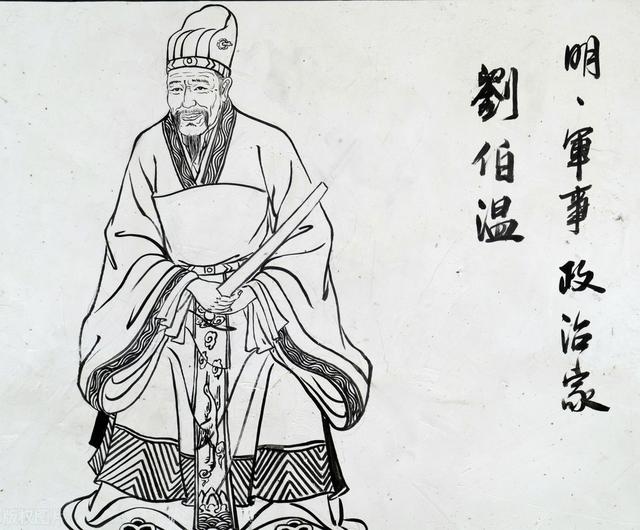 明、軍事政治家
劉伯温
版权图